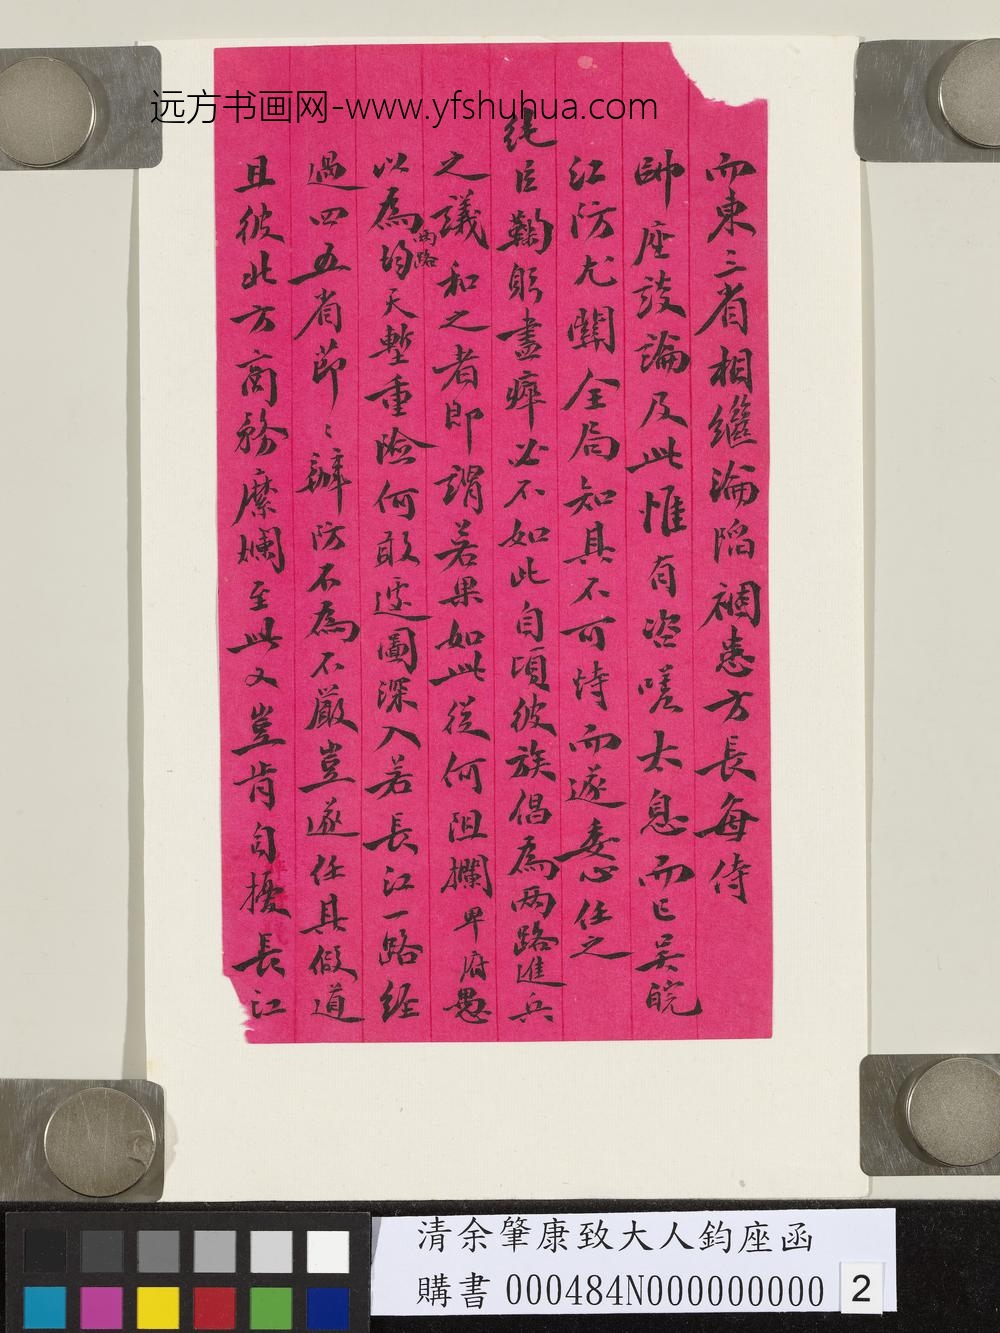 远方书画网-www.yfshuhua.com
而東三省相繼淪陷禍患方長每侍
帥座談論及此惟有咨嗟太息而已吴皖
江防尤關全局知其不可恃而遂委心任之
純臣鞠躬盡瘁必不如此自頃彼族倡為兩路進兵
之議和之者即謂若果如此從何阻攔卑府愚
以為兩路均天塹重險何敢遽圖深入若長江一路經
過四五省節〻辦防不為不嚴豈遂任其假道
且彼此方商務糜爛至此又豈肯自擾長江
清余肇康致大人鈞座函
購書 000484N000000000 2